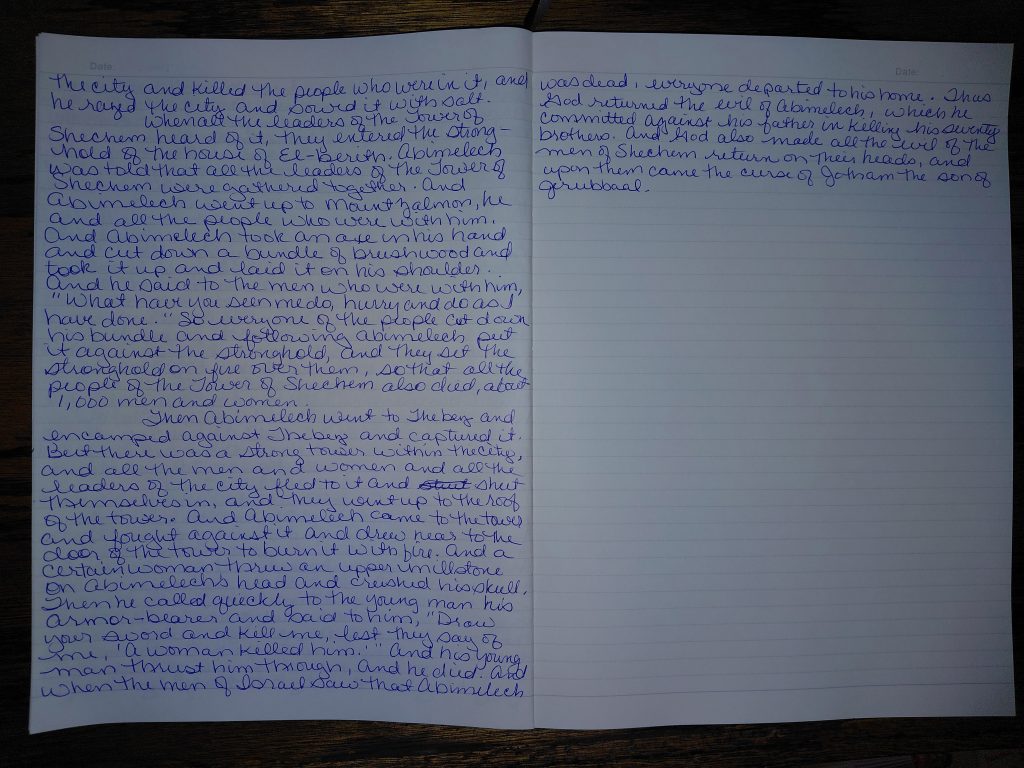 Date:
the city and killed the people who were in it, and
he razed the city and sowed it with salt.
When all the leaders of the Tower of
Shechem heard of it, they entered the strong-
hold of the house of El-Berith. Abimelech
was told that all the leaders of the Tower of
Shechem were gathered together. And
Abimelech went up to Mount Zalmon, he
and all the people who were with him.
And Abimelech took an axe in his hand
and cut down a bundle of brushwood and
took it up and laid it on his shoulder.
And he said to the men who were with him,
"What have you seen me do, hurry and do as I
have done." So everyone of the people cut down
his bundle and following Abimelech put
it against the stronghold, and they set the
stronghold on fire over them, so that all the
people of the Tower of Shechem also died, about
1,000 men and women.
Then Abimelech went to Thebez and
encamped against Thebez and captured it.
But there was a strong tower within the city,
and all the men and women and all the
leaders of the city fled to it and shut
themselves in, and they went up to the roof
of the tower. And Abimelech came to the tower
and fought against it and drew near to the
door of the tower to burn it with fire. And a
certain woman threw an upper millstone
on Abimelech's head and crushed his skull.
Then he called quickly to the young man his
armor-bearer and said to him, "Draw
your sword and kill me, lest they say of
me, 'A woman killed him.'" And his young
man thrust him through, and he died. And
when the men of Israel saw that Abimelech
Date:
was dead, everyone departed to his home. Thus
God returned the evil of Abimelech, which he
committed against his father in killing his seventy
brothers. And God also made all the evil of the
men of Shechem return on their heads, and
upon them came the curse of Jotham the son of
Jerubbaal.